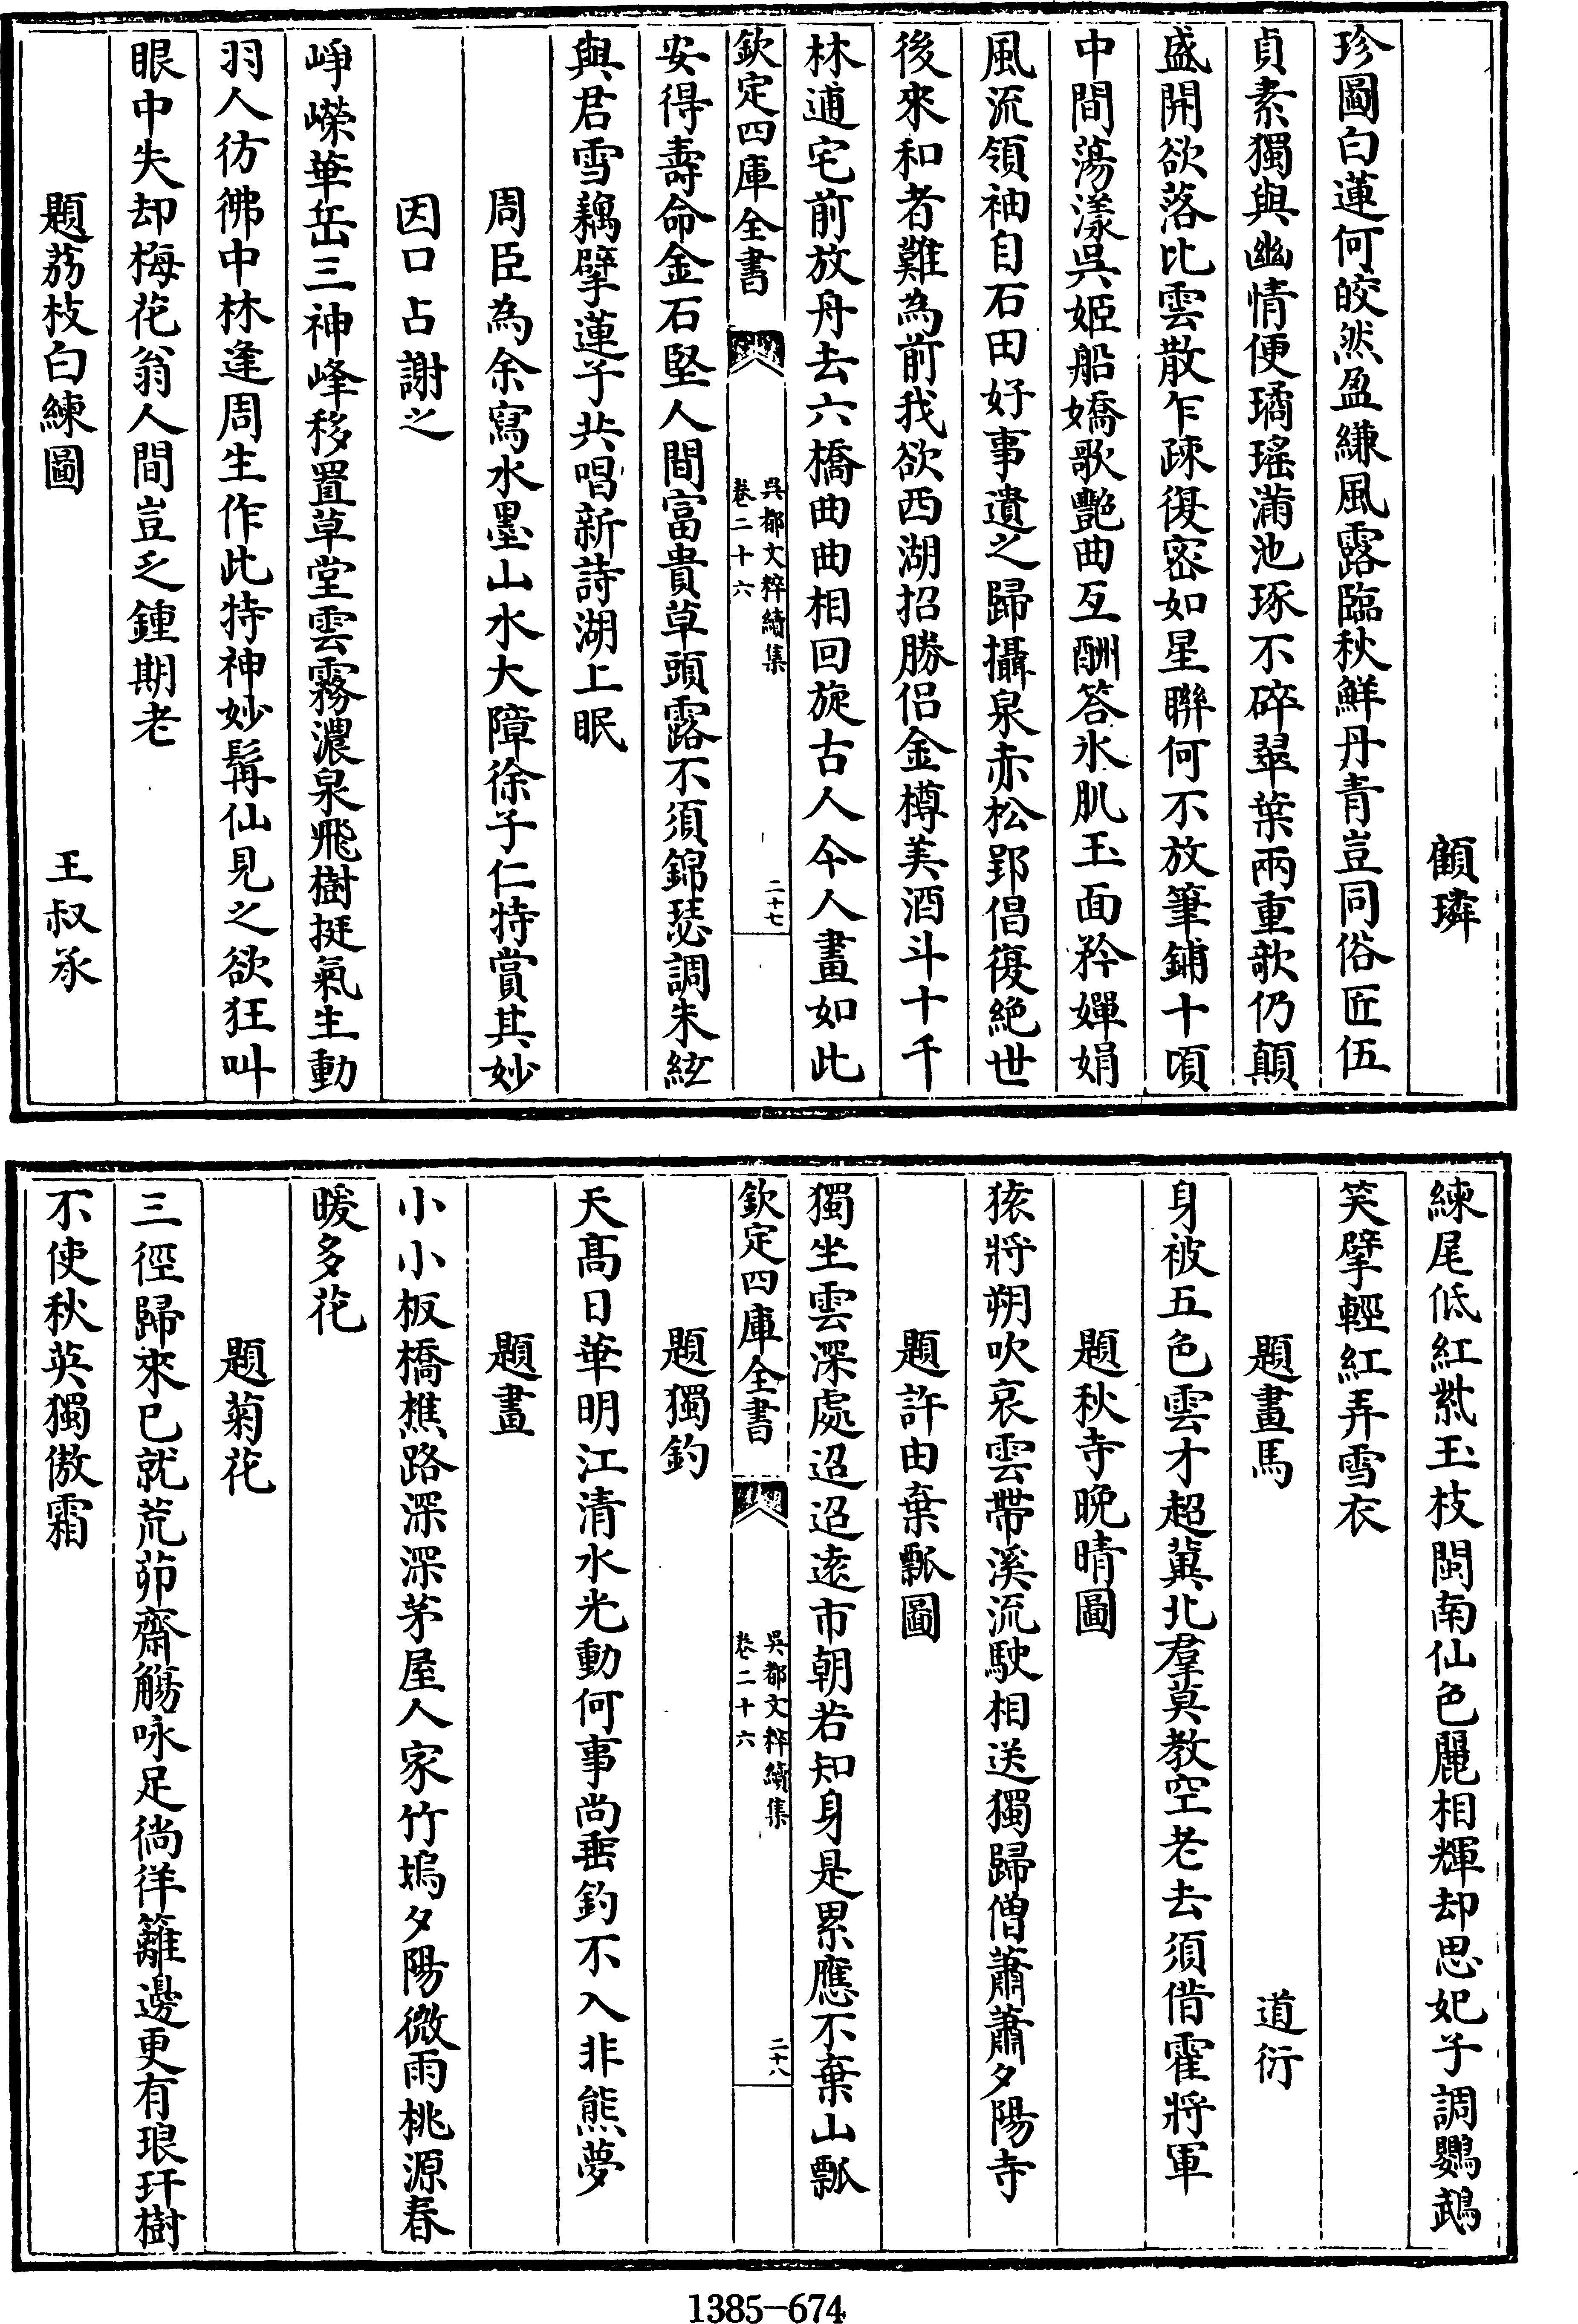 顧璘
珍圖白蓮何皎然盈縑風露臨秋鮮丹青豈同俗匠伍
貞素獨與幽情便璚瑤滿池琢不碎翠葉兩重欹仍顛
盛開欲落比雲散乍疎復密如星聯何不放筆鋪十頃
中間蕩漾吳姬船嬌歌艷曲互酬答氷肌玉面矜嬋娟
風流領袖自石田好事遺之歸攝泉赤松郢倡復絶世
後來和者難為前我欲西湖招勝侣金樽美酒斗十千
林逋宅前放舟去六橋曲曲相回旋古人今人畫如此
欽定四庫全書
吳都文粹續集
卷二十六
二十七
安得壽命金石堅人間富貴草頭露不須錦瑟調朱絃
與君雪藕擘蓮子共唱新詩湖上眠
周臣為余寫水墨山水大障徐子仁特賞其妙
因口占謝之
崢嶸華岳三神峰移置草堂雲霧濃泉飛樹挺氣生動
羽人彷彿中林逢周生作此特神妙髯仙見之欲狂叫
眼中失却梅花翁人間豈乏鍾期老
題荔枝白練圖
王叔承
練尾低紅紫玉枝閩南仙色麗相輝却思妃子調鸚鵡
笑擘輕紅弄雪衣
題畫馬
道衍
身被五色雲才超冀北羣莫教空老去須借霍將軍
題秋寺晚晴圖
猿將朔吹哀雲帶溪流駛相送獨歸僧蕭蕭夕陽寺
題許由棄瓢圖
獨坐雲深處迢迢遠市朝若知身是累應不棄山瓢
欽定四庫全書
吳都文粹續集
卷二十六
二十八
題獨釣
天髙日華明江清水光動何事尚垂釣不入非熊夢
題畫
小小板橋樵路深深茅屋人家竹塢夕陽微雨桃源春
暖多花
題菊花
三徑歸來已就荒茆齋觴咏足徜徉籬邊更有琅玕樹
不使秋英獨傲霜
1385-674